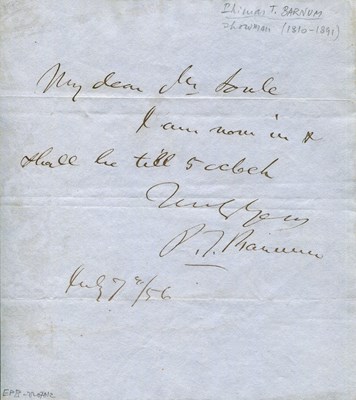 Phineas T. BARNUM
showman (1810-1891)
My dear Mr Soule
I am now in &
shall be till 5 oclock
Truly yours
P. T. Barnum
July 7th/56